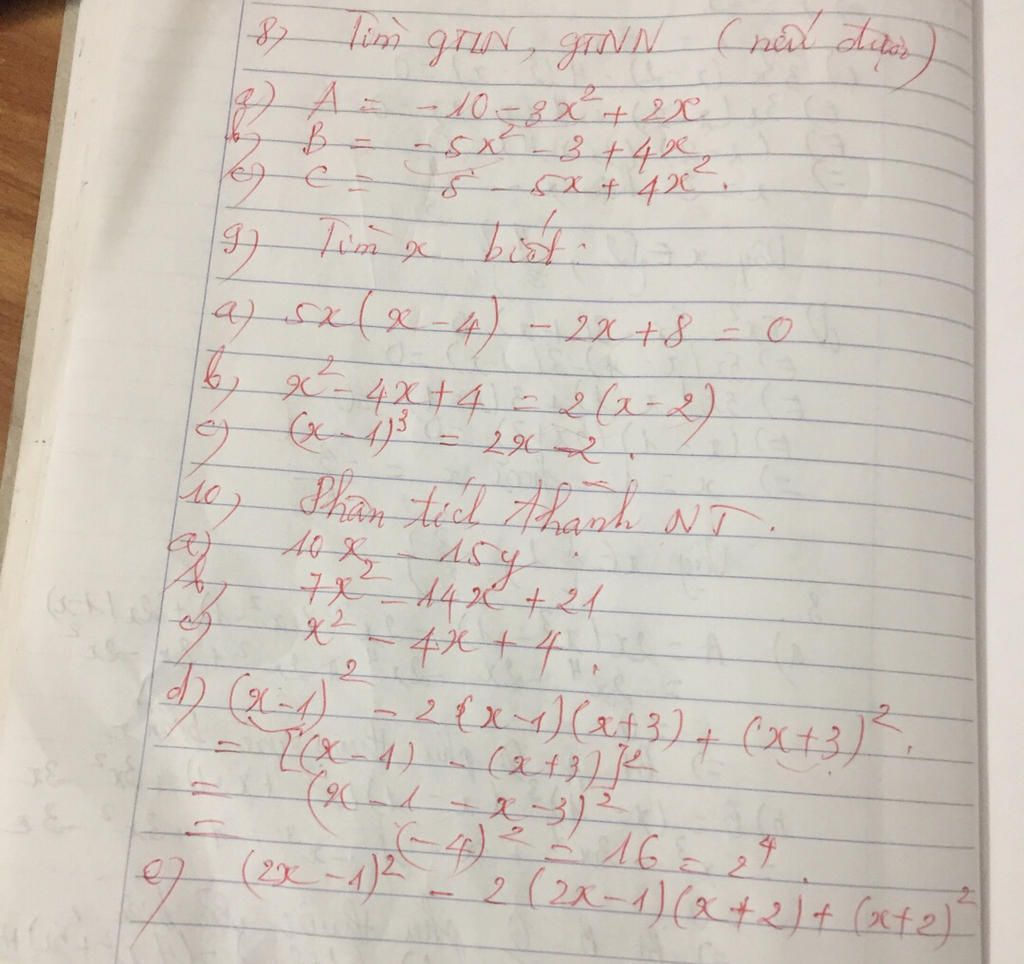 8) Tìm GTLN, GTNN (nếu được)
a) A = -10 - 3x² + 2x
b) B = -5x² - 3 + 4x
c) C = 5 - 5x + 4x².
9) Tìm x biết:
a) 5x(x-4) - 2x + 8 = 0
b) x² - 4x + 4 = 2(x-2)
c) (x-1)³ = 2x - 2.
10) Phân tích thành NT.
a) 10x - 15y.
b) 7x² - 14x + 21
c) x² - 4x + 4.
d) (x-1)² - 2(x-1)(x+3) + (x+3)².
= [(x-1) - (x+3)]²
= (x-1-x-3)²
= (-4)² = 16 = 2⁴.
e) (2x-1)² - 2(2x-1)(x+2) + (x+2)²